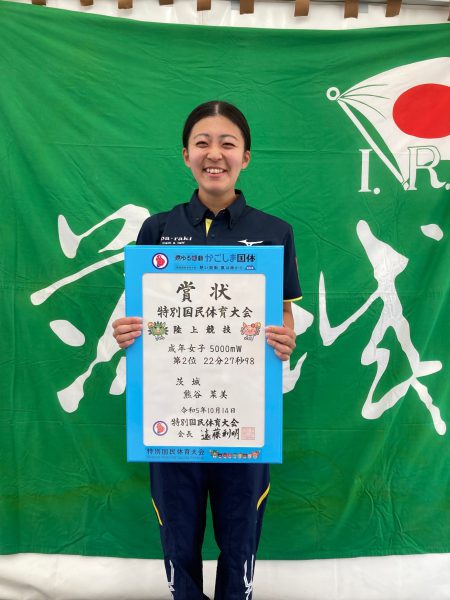 I.R.
茨城
Ba-raki
燃ゆる感動 かごしま国体
熱い鼓動 風は南から
賞状
特別国民体育大会
陸上競技
成年女子 5000mW
第2位 22分27秒98
茨城
熊谷 菜美
令和5年10月14日
特別国民体育大会
会長 遠藤利明
特別国民体育大会